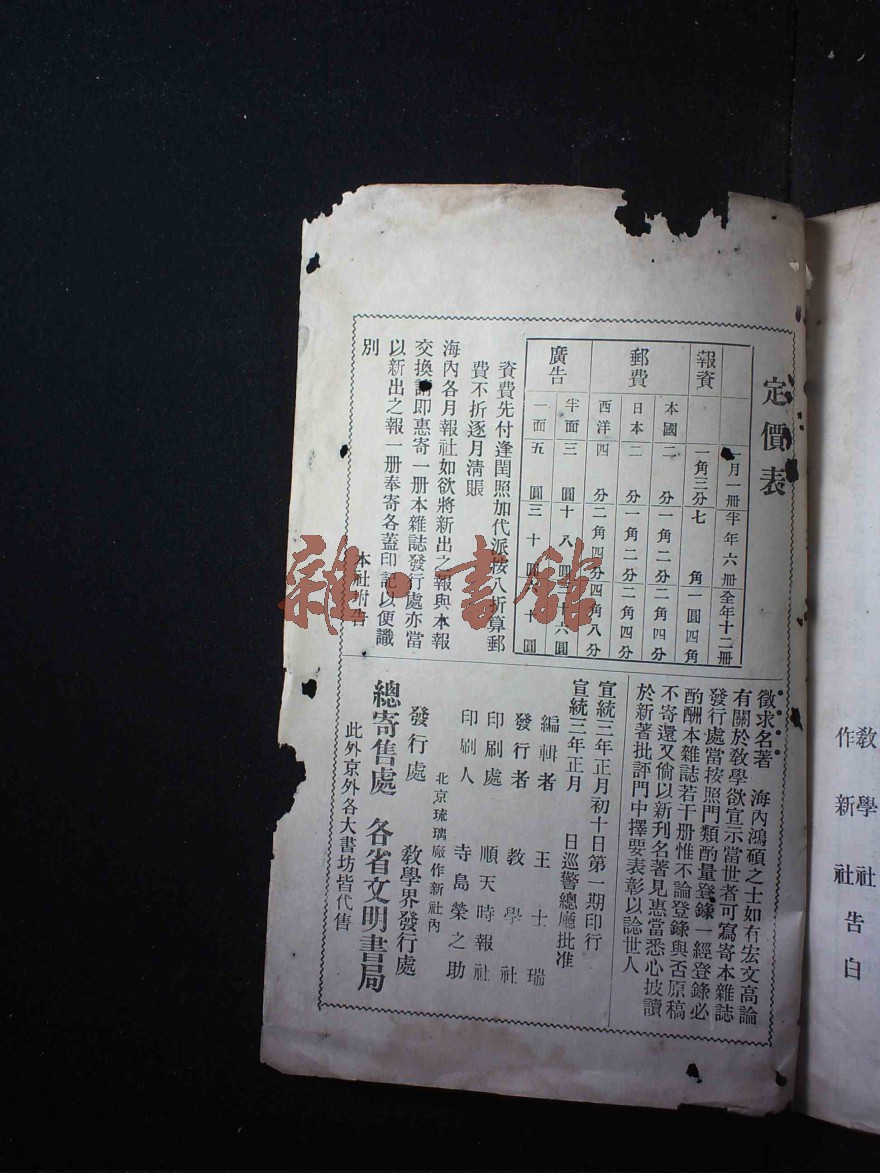 定價表
一月一册 半年六册 全年十二册
報資 一角三分 七角 一圓四角
郵費
本國 二分 一角二分 二角四分
日本 二分 一角二分 二角四分
西洋 四分 二角四分 四角八分
廣告
半面 三圓 十八圓 三十六圓
一面 五圓 三十圓 六十圓
資費先付逢閏照加代派按八折算郵
費不折逐月淸賬
海內各月報社如欲將新出之報與本報
交換請卽惠寄一册本雜誌發行處亦當
以新出之報一册奉寄各蓋印記以便識
別
本社附告
徵求名著 海內鴻碩之士如有宏文高論
有關於敎學欲宣示當世者可寫寄本雜誌
發行處當按照門類酌量登錄一經登錄必
酌酬本雜誌若干册惟不論登錄與否原稿
不寄還又倘以新刊名著見惠當悉心披讀
於新著批評門中擇要表彰以諗世人
宣統三年正月初十日第一期印行
宣統三年正月 日巡警總廳批准
編輯者 王士瑞
發行者 敎學社
印刷處 順天時報社
印刷人 寺島榮之助
北京琉璃廠作新社內
發行處 敎學界發行處
總寄售處 各省文明書局
此外京外各大書坊皆代售
敎學社
作新社告白
雜·書館